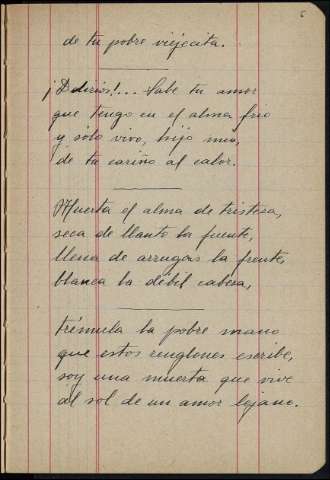 de tu pobre viejecita.
¡Delirios!... Sabe tu amor
que tengo en el alma frio
y solo vivo, hijo mio,
de tu cariño al calor.
Muerta el alma de tristeza,
seca de llanto la fuente,
llena de arrugas la frente,
blanca la débil cabeza,
trémula la pobre mano
que estos renglones escribe,
soy una muerta que vive
al sol de un amor lejano.